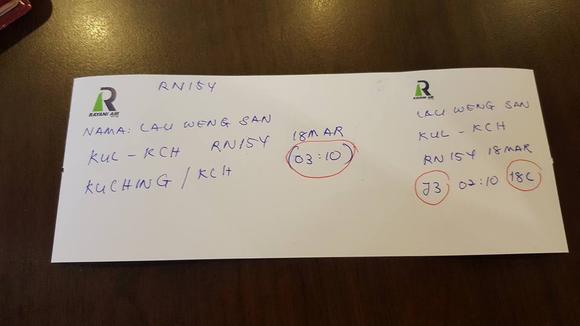 RN15Y
RAYANI AIR
NAMA: LAU WENG SAN
18MAR
KUL - KCH RN15Y (03:10)
KUCHING / KCH
RAYANI AIR
LAU WENG SAN
KUL - KCH
RN 15Y 18 MAR
J3 02:10 18C